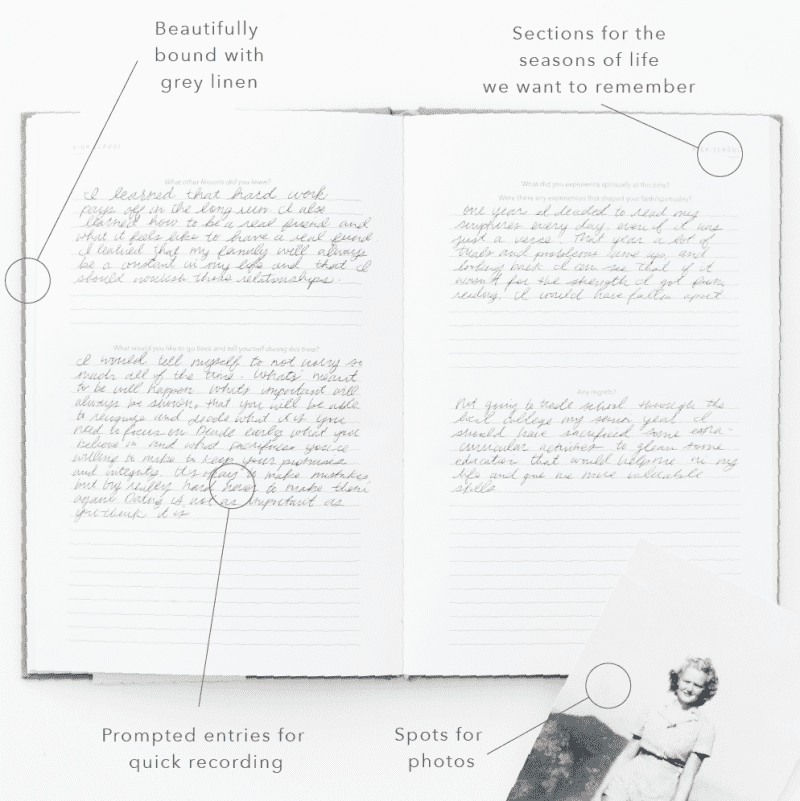 Beautifully
bound with
grey linen
Sections for the
seasons of life
we want to remember
HIGH SCHOOL
What other lessons did you learn?
I learned that hard work
pays off in the long run. I also
learned how to be a real friend and
what it feels like to have a real friend
I learned that my family will always
be a constant in my life and that I
should nourish those relationships.
What would you like to go back and tell yourself during this time?
I would tell myself to not worry so
much all of the time. What's meant
to be will happen. What's important will
always be shown, that you will be able
to recognize and decide what it is you
need to focus on. Decide early what you
believe in and what sacrifices you're
willing to make to keep your promises
and integrity. It's okay to make mistakes,
but try really hard never to make them
again. Dating is not as important as
you think it is
What did you experience spiritually at this time?
Were there any experiences that shaped your faith/spirituality?
One year I decided to read my
scriptures every day, even if it was
just a verse. That year a lot of
trials and problems came up, and
looking back I can see that if it
wasn't for the strength I got from
reading, I would have fallen apart
Any regrets?
Not going to trade school through the
local college my senior year. I
should have sacrificed some extra-
curricular activities to glean some
education that would help me in my
life and give me more valuable
skills
Prompted entries for
quick recording
Spots for
photos